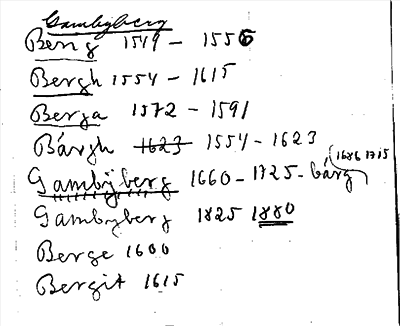 Gambyberg
Berg 1549 - 1556
Bergh 1554 - 1615
Berga 1572 - 1591
Bárgh 1623 1554 - 1623
(1686 1715
Gambÿberg 1660 - 1725 - bárg
Gambyberg 1825 1880
Berge 1600
Bergit 1615